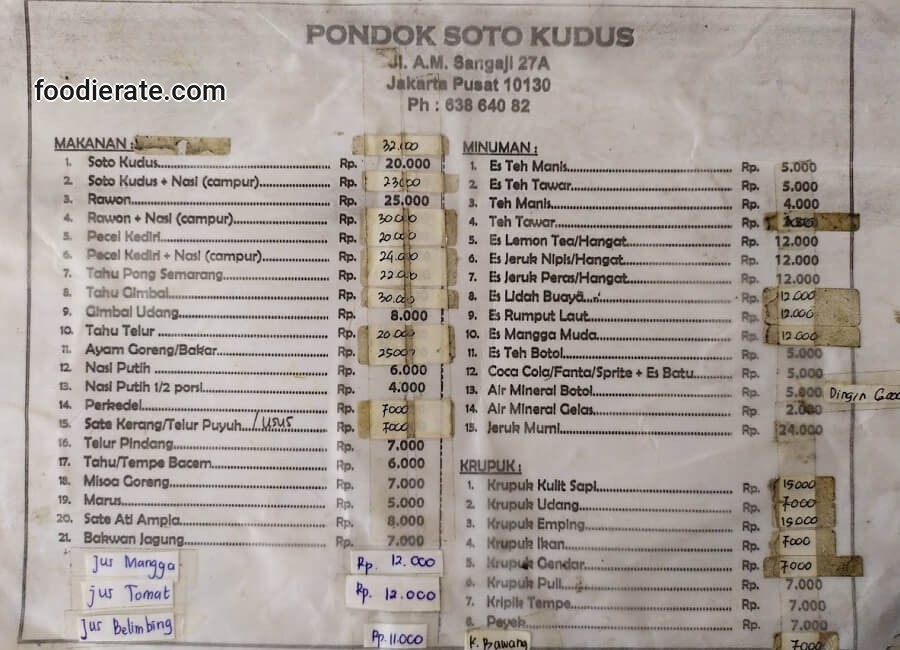 PONDOK SOTO KUDUS
Jl. A.M. Sangaji 27A
Jakarta Pusat 10130
Ph : 638 640 82
foodierate.com
MAKANAN :
32.000
1. Soto Kudus Rp. 20.000
2. Soto Kudus + Nasi (campur) Rp. 23000
3. Rawon Rp. 25.000
4. Rawon + Nasi (campur) Rp. 30.000
5. Pecel Kediri Rp. 20.000
6. Pecel Kediri + Nasi (campur) Rp. 24.000
7. Tahu Pong Semarang Rp. 22.000
8. Tahu Gimbal Rp. 30.000
9. Gimbal Udang Rp. 8.000
10. Tahu Telur Rp. 20.000
11. Ayam Goreng/Bakar Rp. 25000
12. Nasi Putih Rp. 6.000
13. Nasi Putih 1/2 porsi Rp. 4.000
14. Perkedel Rp. 7000
15. Sate Kerang/Telur Puyuh /usus Rp. 7000
16. Telur Pindang Rp. 7.000
17. Tahu/Tempe Bacem Rp. 6.000
18. Misoa Goreng Rp. 7.000
19. Marus Rp. 5.000
20. Sate Ati Ampla Rp. 8.000
21. Bakwan Jagung Rp. 7.000
jus Mangga Rp. 12.000
jus Tomat Rp. 12.000
jus Belimbing Rp. 11.000
MINUMAN :
1. Es Teh Manis Rp. 5.000
2. Es Teh Tawar Rp. 5.000
3. Teh Manis Rp. 4.000
4. Teh Tawar Rp.
5. Es Lemon Tea/Hangat Rp. 12.000
6. Es Jeruk Nipis/Hangat Rp. 12.000
7. Es Jeruk Peras/Hangat Rp. 12.000
8. Es Lidah Buaya Rp. 12.000
9. Es Rumput Laut Rp. 12.000
10. Es Mangga Muda Rp. 12.000
11. Es Teh Botol Rp. 5.000
12. Coca Cola/Fanta/Sprite + Es Batu Rp. 5.000
13. Air Mineral Botol Rp. 5.000 Dingin
14. Air Mineral Gelas Rp. 2.000
15. Jeruk Murni Rp. 24.000
KRUPUK :
1. Krupuk Kulit Sapi Rp. 15000
2. Krupuk Udang Rp. 7000
3. Krupuk Emping Rp. 15000
4. Krupuk Ikan Rp. 7000
5. Krupuk Gendar Rp. 7000
6. Krupuk Puli Rp. 7.000
7. Kripik Tempe Rp. 7.000
8. Peyek Rp. 7.000
K. Bawang 7000